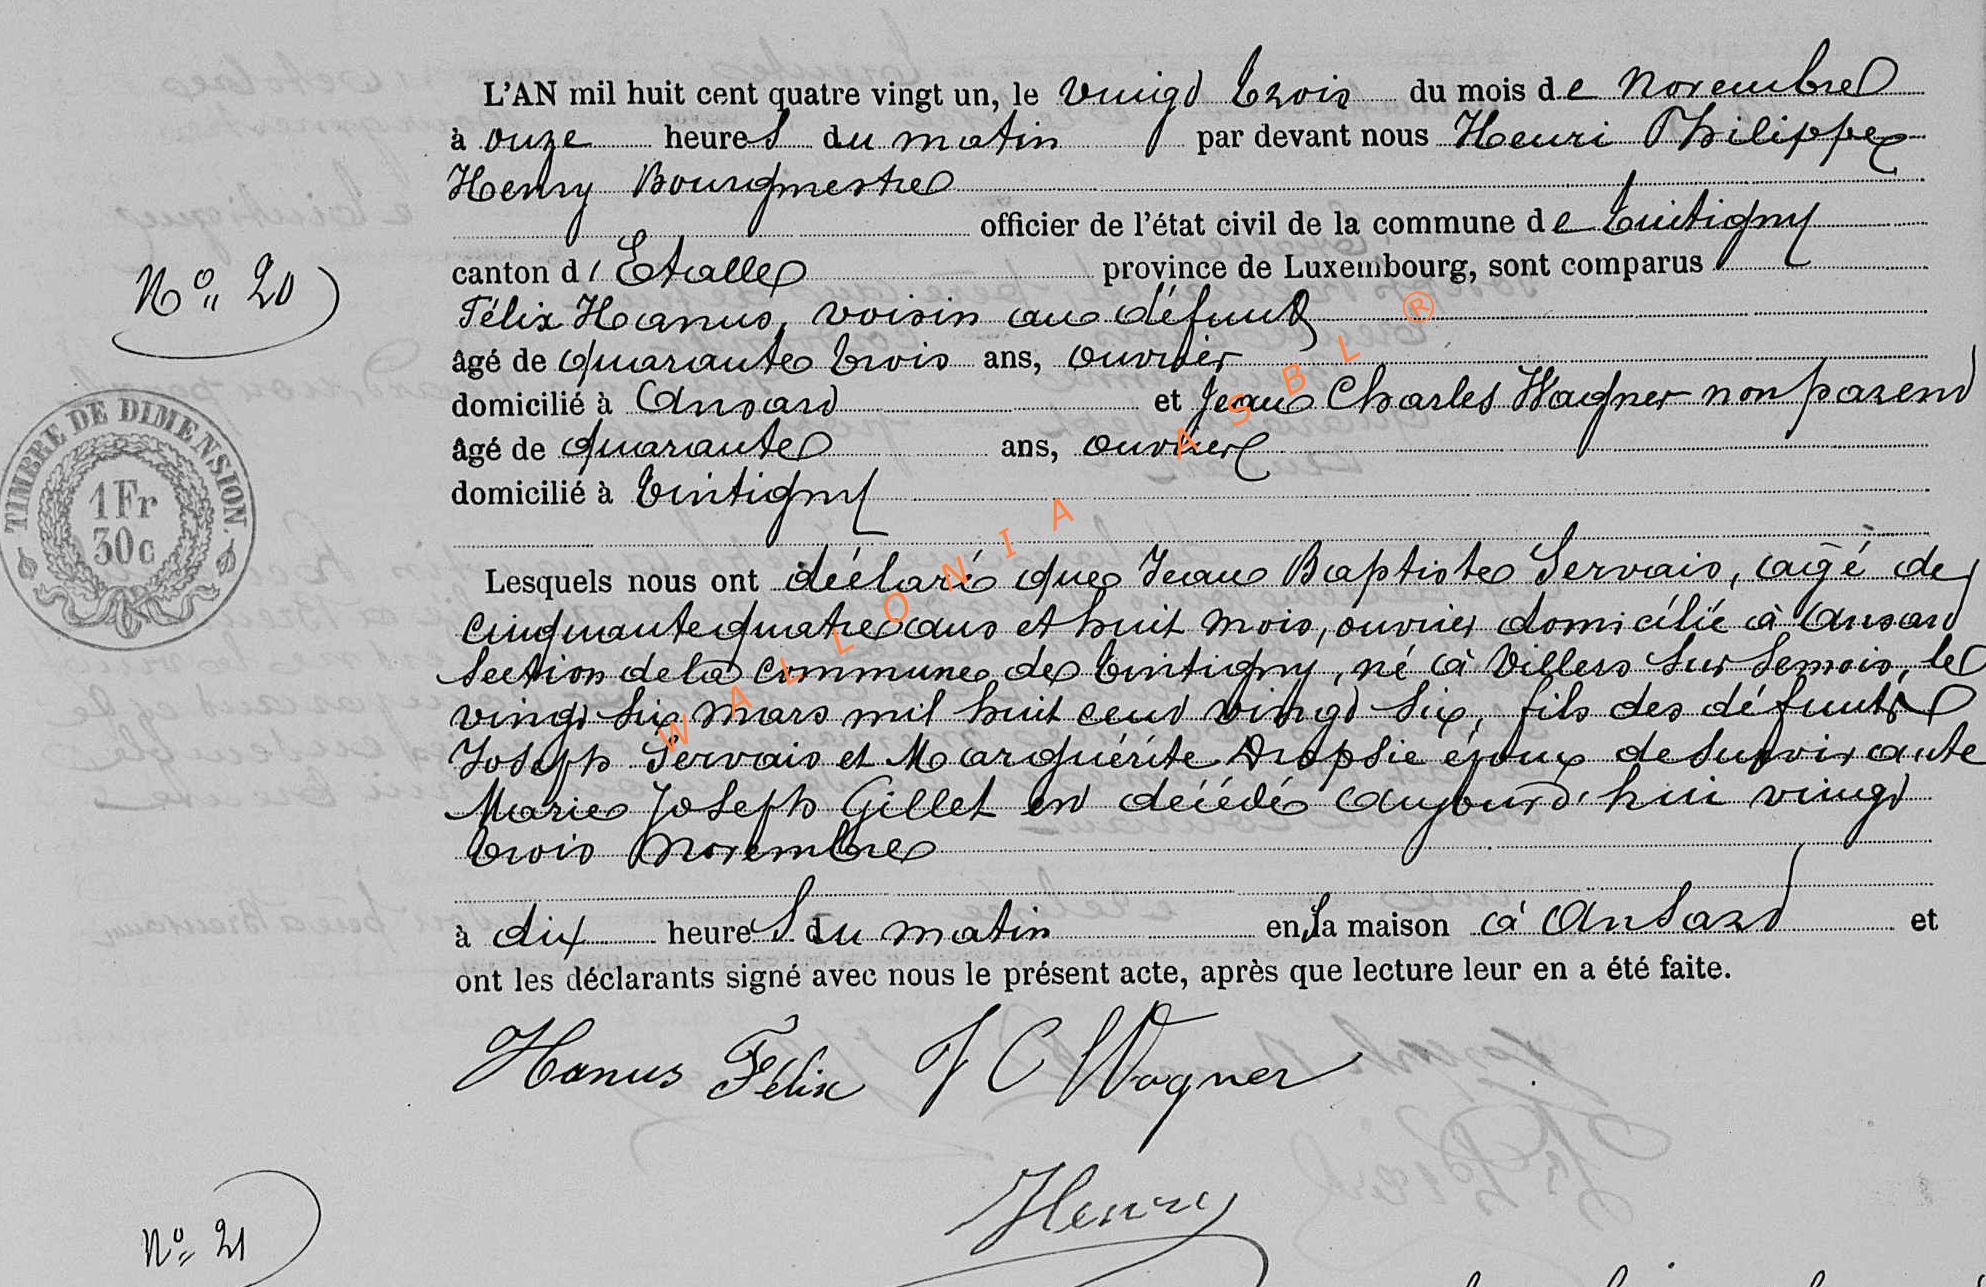 L'AN mil huit cent quatre vingt un, le vingt trois du mois de novembre
à onze heures du matin par devant nous Henri Philippe
Henry Bourgmestre
officier de l'état civil de la commune de Tintigny
N° 20
canton d'Etalle province de Luxembourg, sont comparus
Félix Hanus, voisin au défunt
âgé de quarante trois ans, ouvrier
domicilié à Ansart et Jean Charles Wagner non parent
âgé de quarante ans, ouvrier
domicilié à Tintigny
TIMBRE DE DIMENSION.
1 Fr
30 c
Lesquels nous ont déclaré que Jean Baptiste Servais, âgé de
cinquante quatre ans et huit mois, ouvrier domicilié à Ansart
section de la commune de Tintigny, né à Villers sur Semois, le
vingt six mars mil huit cent vingt six, fils des défunts
Joseph Servais et Marguérite Dropsie époux de survivante
Marie Joseph Gillet est décédé aujourd'hui vingt
trois novembre
à dix heures du matin en sa maison à Ansart et
ont les déclarants signé avec nous le présent acte, après que lecture leur en a été faite.
Hanus Félix J C Wagner
Henry
N° 21
WALLONIA ASBL ®